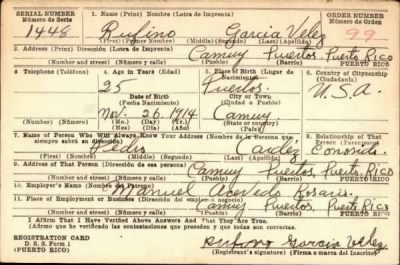 SERIAL NUMBER
Número de Serie
1. Name (Print) Nombre (Letra de Imprenta)
ORDER NUMBER
Número de Orden
1448 Rufino Garcia Velez 99
(First) (Primer Nombre) (Middle) (Segundo) (Last) (Apellido)
2. Address (Print) Dirección (Letra de Imprenta)
Camuy Puertos, Puerto Rico
(Number and street) (Número y calle) (Town) (Pueblo) (Barrio) PUERTO RICO
3. Telephone (Teléfono)
4. Age in Years (Edad)
5. Place of Birth (Lugar de Nacimiento)
6. Country of Citizenship
(Ciudadanía)
25 Puertos,
Date of Birth
(Fecha Nacimiento)
City or Town
(Ciudad o Pueblo)
U.S.A.
Nov. 26, 1914 Camuy
(Mo.) (Day) (Yr.)
(Mes) (Día) (Año)
(State or country)
(País)
7. Name of Person Who Will Always Know Your Address (Nombre de la Persona que siempre sabrá su dirección)
8. Relationship of That Person (Parentesco)
Pedro Conocido
(First) (Nombre) (Middle) (Segundo) (Last) (Apellido)
9. Address of That Person (Dirección de esa persona)
Camuy Puertos, Puerto Rico
(Number and street) (Número y calle) (Town) (Pueblo) (Barrio) PUERTO RICO
10. Employer's Name (Nombre del Patrono)
Manuel Acevedo Rosario
11. Place of Employment or Business (Dirección del empleo o negocio)
Camuy Puertos, Puerto Rico
(Number and street) (Número y calle) (Town) (Pueblo) (Barrio) PUERTO RICO
I Affirm That I Have Verified Above Answers And That They Are True.
(Afirmo que he verificado las contestaciones que preceden y que todas son correctas.
REGISTRATION CARD
D. S. S. Form 1
(PUERTO RICO)
Rufino Garcia Velez
(Registrant's signature) (Firma del Inscrito)